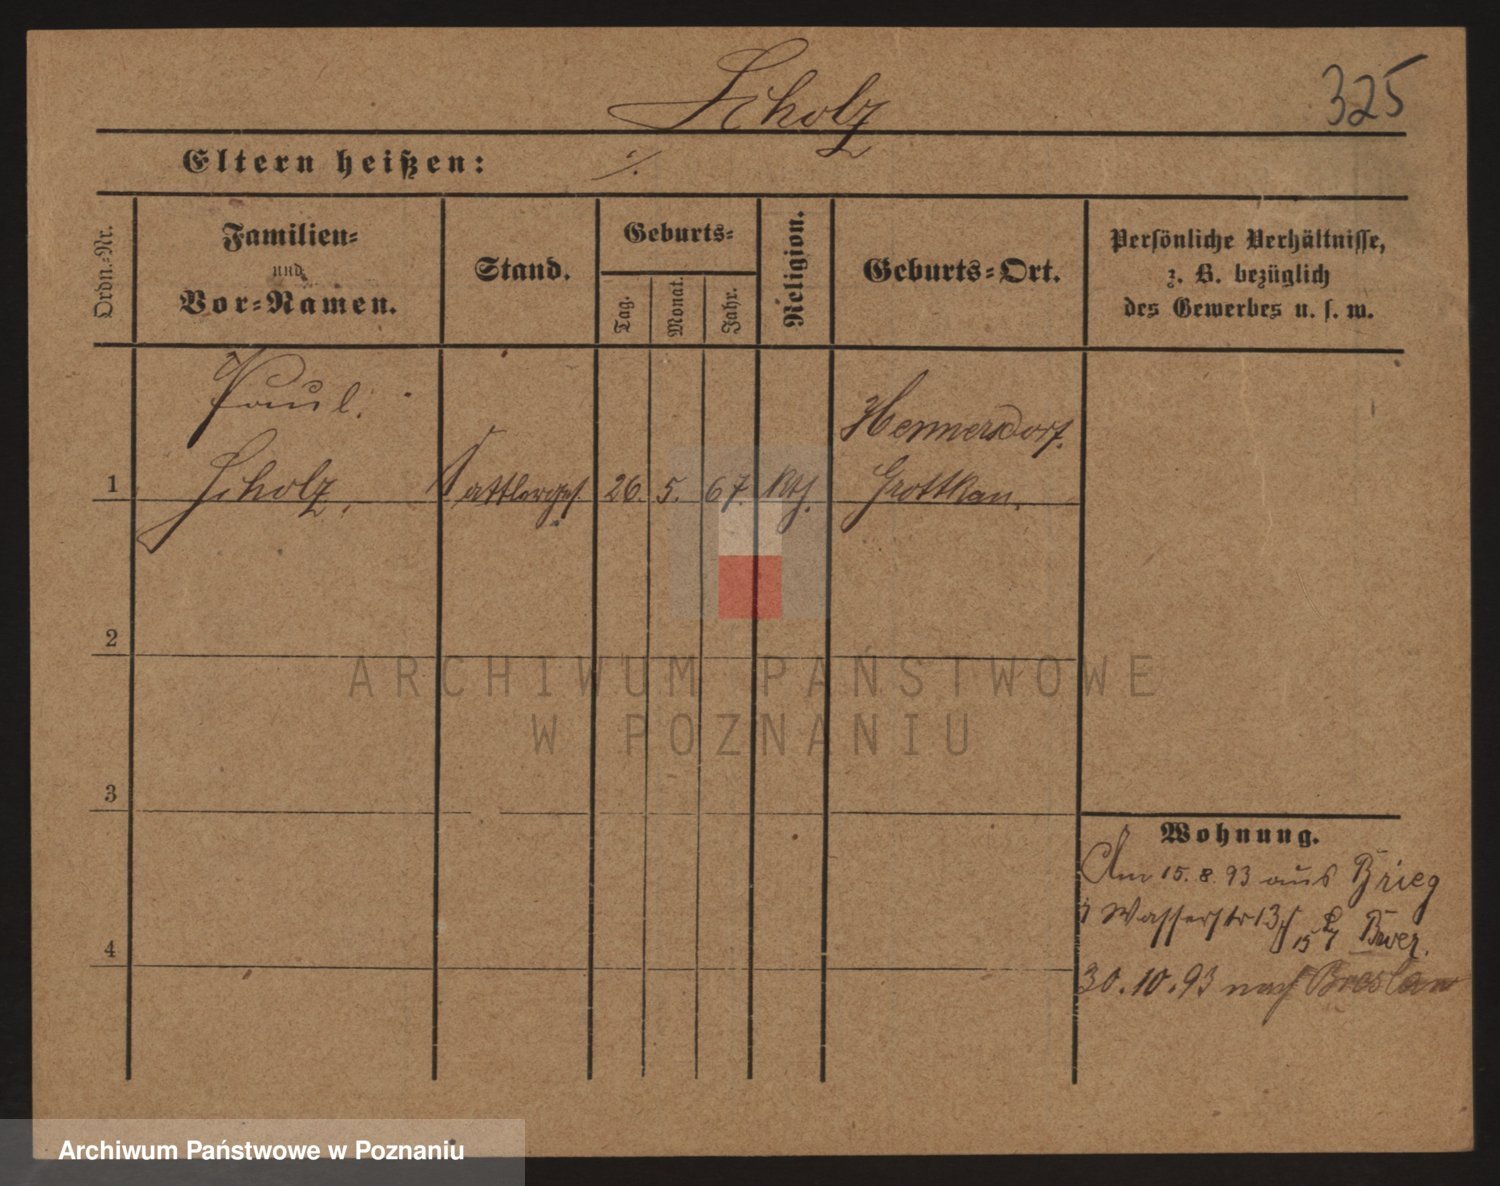 Scholz
325
Eltern heißen: ·/.
Ordn.-Nr.
Familien-
und
Vor-Namen.
Stand.
Geburts-
Tag.
Monat.
Jahr.
Religion.
Geburts-Ort.
Persönliche Verhältnisse,
z. B. bezüglich
des Gewerbes u. s. w.
Paul.
1 Scholz. Sattlerges. 26. 5. 67. Kth.
Hennersdorf.
Grottkau.
2
3
4
ARCHIWUM PAŃSTWOWE
W POZNANIU
Wohnung.
Am 15.8.93 aus Brieg
Wasserstr 13
15
30.10.93 nach Breslau
Archiwum Państwowe w Poznaniu